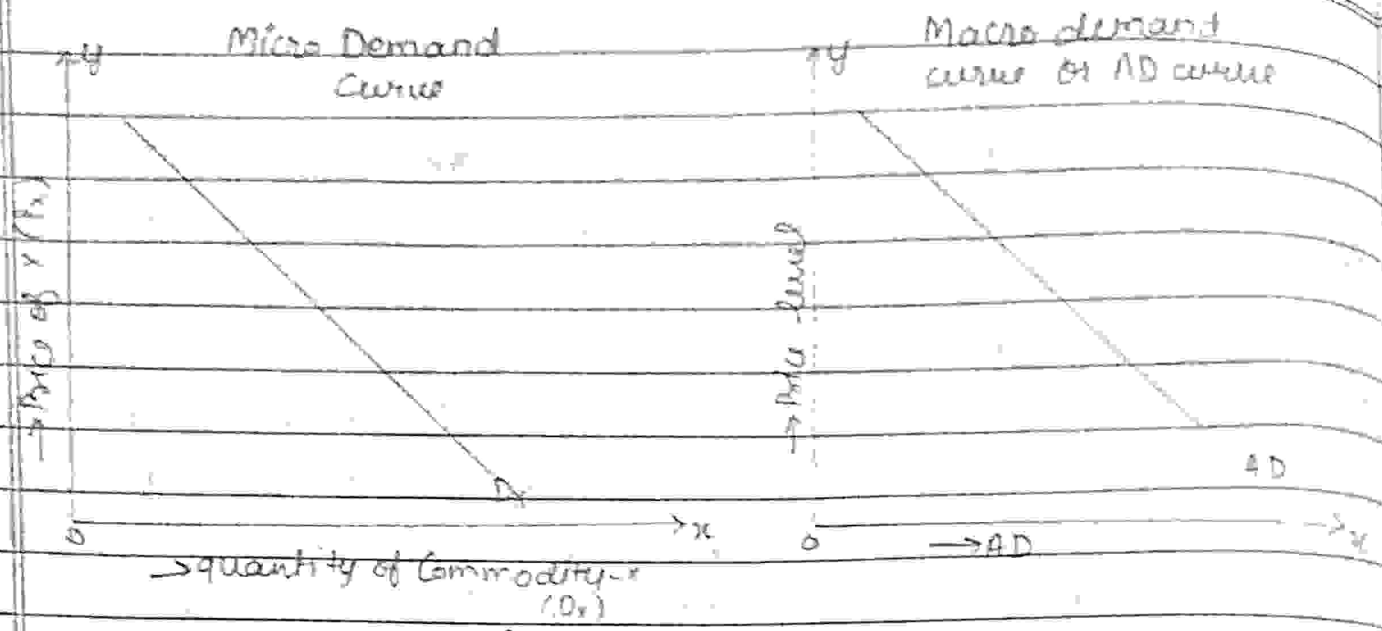 Micro Demand
Curve
y
→ Price of x (Px)
Dx
O
x
→ quantity of Commodity-x
(Dx)
Macro demand
curve or AD curve
y
→ Price level
AD
O
x
→ AD